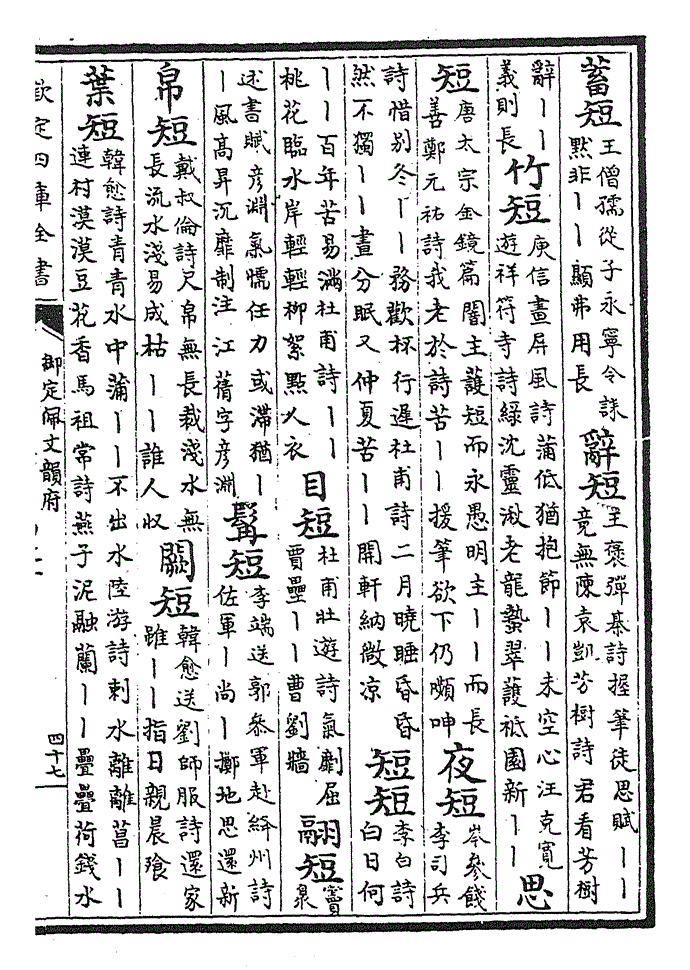 蓄短
王僧孺從子永寧令誄
黙非丨丨顯弗用長
辭短
王褒彈棊詩握筆徒思賦丨丨
竟無陳袁凱芳樹詩君看芳樹
辭丨丨
義則長
竹短
庾信畫屏風詩蒲低猶抱節丨丨未空心汪克寬
遊祥符寺詩緑沈靈湫老龍蟄翠護祗園新丨丨
思
短
唐太宗金鏡篇闇主護短而永愚明主丨丨而長
善鄭元祐詩我老於詩苦丨丨援筆欲下仍頻呻
夜短
岑參餞
李司兵
詩惜别冬丨丨務歡杯行遲杜甫詩二月曉睡昏昏
然不獨丨丨晝分眠又仲夏苦丨丨開軒納微凉
短短
李白詩
白日何
丨丨百年苦易滿杜甫詩丨丨
桃花臨水岸輕輕柳絮點人衣
目短
杜甫壯遊詩氣劘屈
賈壘丨丨曹劉牆
翮短
竇
臮
述書賦彦淵氣懦任力或滯猶丨
丨風高昇沉靡制注江蒨字彦淵
髯短
李端送郭叅軍赴絳州詩
佐軍丨尚丨擲地思還新
帛短
戴叔倫詩尺帛無長裁淺水無
長流水淺易成枯丨丨誰人收
闕短
韓愈送劉師服詩還家
雖丨丨指日親晨飱
葉短
韓愈詩青青水中蒲丨丨不出水陸游詩刺水離離菖丨丨
連村漠漠豆花香馬祖常詩燕子泥融蘭丨丨疊疊荷錢水
欽定四庫全書
御定佩文韻府
四十七